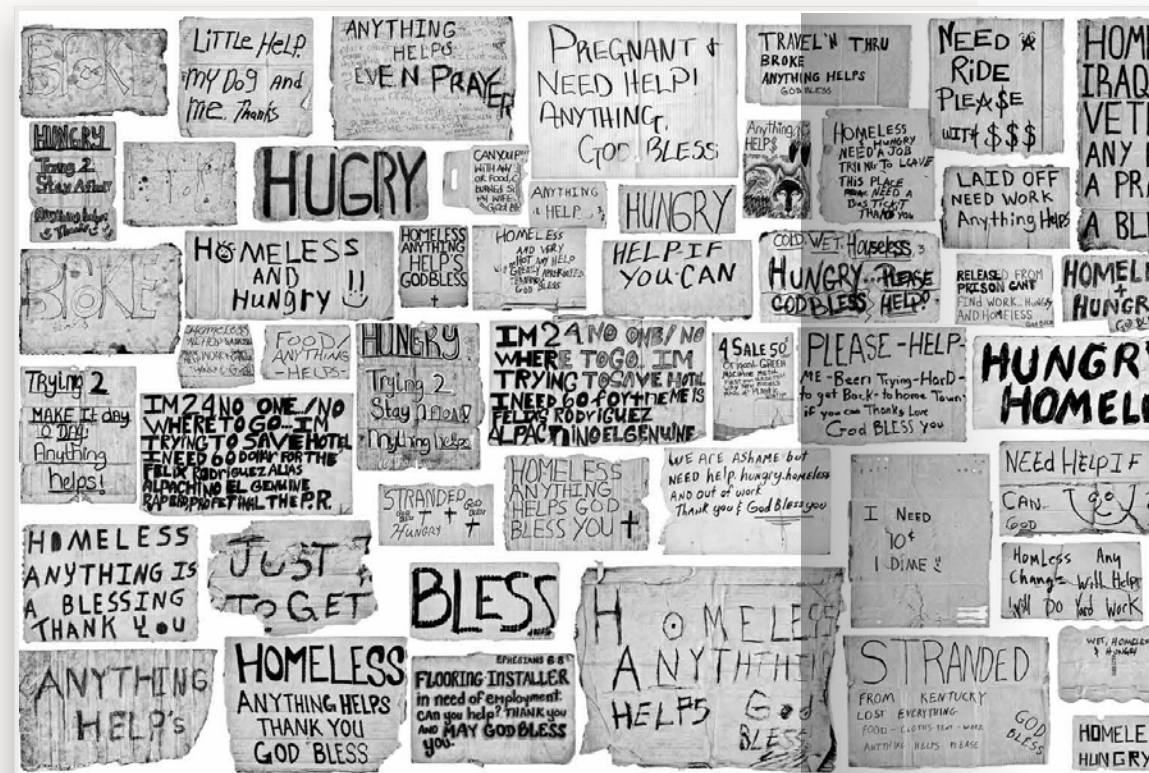 BROKE
LITTLE HELP.
my Dog And
me. Thanks
ANYTHING
HELPS
EVEN PRAYER
PREGNANT &
NEED HELP!
ANYTHING.
GOD BLESS
TRAVEL'N THRU
BROKE
ANYTHING HELPS
GOD BLESS
NEED A
RiDE
PLEA$E
WITH $$$
HOME
IRAQ
VET
ANY
A PRA
A BL
HUNGRY
Trying 2
Stay Afloat
Anything helps
Thanks
HUGRY
CAN YOU
WITH ANY
OR FOOD,
MY WIFE
GOD BL
ANYTHING
HELP
HUNGRY
Anything
HELPS
HOMELESS
& HUNGRY
NEED A JOB
TRYING TO LEAVE
THIS PLACE
NEED A
BUS TICKT
THANK YOU
LAID OFF
NEED WORK
Anything Helps
BROKE
HOMELESS
AND
HUNgRy !!
HOMELESS
ANYTHING
HELP'S
GODBLESS
HOMELESS
AND VERY
HOT ANY HELP
GOD BLESS
HELP-IF
YOU-CAN
COLD, WET, Houseless,
HUNGRY PLEASE
GOD BLESS HELP
RELEASED FROM
PRISON CANT
FIND WORK. HUNGRY
AND HOMELESS
HOMELE
+
HUNGR
GOD BL
Homeless
FOOD/
ANYTHING
-HELPS-
HUNGRY
Trying 2
Stay Afloat
Anything helps
IM 24 NO ONE/NO
WHERE TO GO... IM
TRYING TO SAVE HOTEL
I NEED 60 FOR THEME IS
FELIX RODRIGUEZ
ALPACINO EL GENUINE
4 SALE 50¢
ORIGINAL GREEN
PLEASE-HELP-
ME-Been Trying-HarD-
to get Back-to home Town
if you can Thanks Love
God BLESS you
HUNGRY
HOMEL
Trying 2
MAKE IT day
TO DAY.
Anything
helps!
IM 24 NO ONE./NO
WHERE TO GO... IM
TRYING TO SAVE HOTEL
I NEED 60 DOllAr FOR THE
FELIX RODRIGUEZ ALIAS
ALPACHINO EL GENUINE
THE P.R.
STRANDED
HUNGRY
GOD
BLESS
HOMELESS
ANYTHING
HELPS GOD
BLESS YOU +
WE ARE ASHAME but
NEED help. hungry.homeless
AND out of work
Thank you & God Bless you
I NEED
10¢
1 DIME
NEEd HELP IF
CAN..
GOD
HOMELESS
ANYTHING IS
A BLESSING
THANK YOU
JUST
TO GET
BLESS
H OMELESS
ANYTHTHI
HELPS God
BLESS
HomLess Any
Change will Help
will DO Yard Work
ANYTHING
HELP's
HOMELESS
ANYTHING HELPS
THANK YOU
GOD BLESS
EPHESIANS 6:8
FLOORING INSTALLER
in need of employment.
CAN you help? THANK you
AND MAY GOD BLESS
you.
STRANDED
FROM KENTUCKY
LOST EVERYTHING
FOOD - CLOTHS-TENT-WORK
ANYTHING HELPS PLEASE
GOD
BLESS
WET, HOMELESS
& HUNGRY
HOMELE
HUNGRY